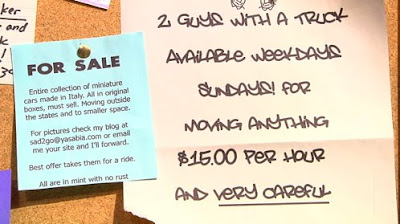 ker
y and
k
30
FOR SALE
Entire collection of miniature
cars made in Italy. All in original
boxes, must sell. Moving outside
the states and to smaller space.
For pictures check my blog at
sad2go@yasabia.com or email
me your site and I'll forward.
Best offer takes them for a ride.
All are in mint with no rust
2 GUYS WITH A TRUCK
AVAILABLE WEEKDAYS
SUNDAYS! FOR
MOVING ANYTHING
$15.00 PER HOUR
AND VERY CAREFUL